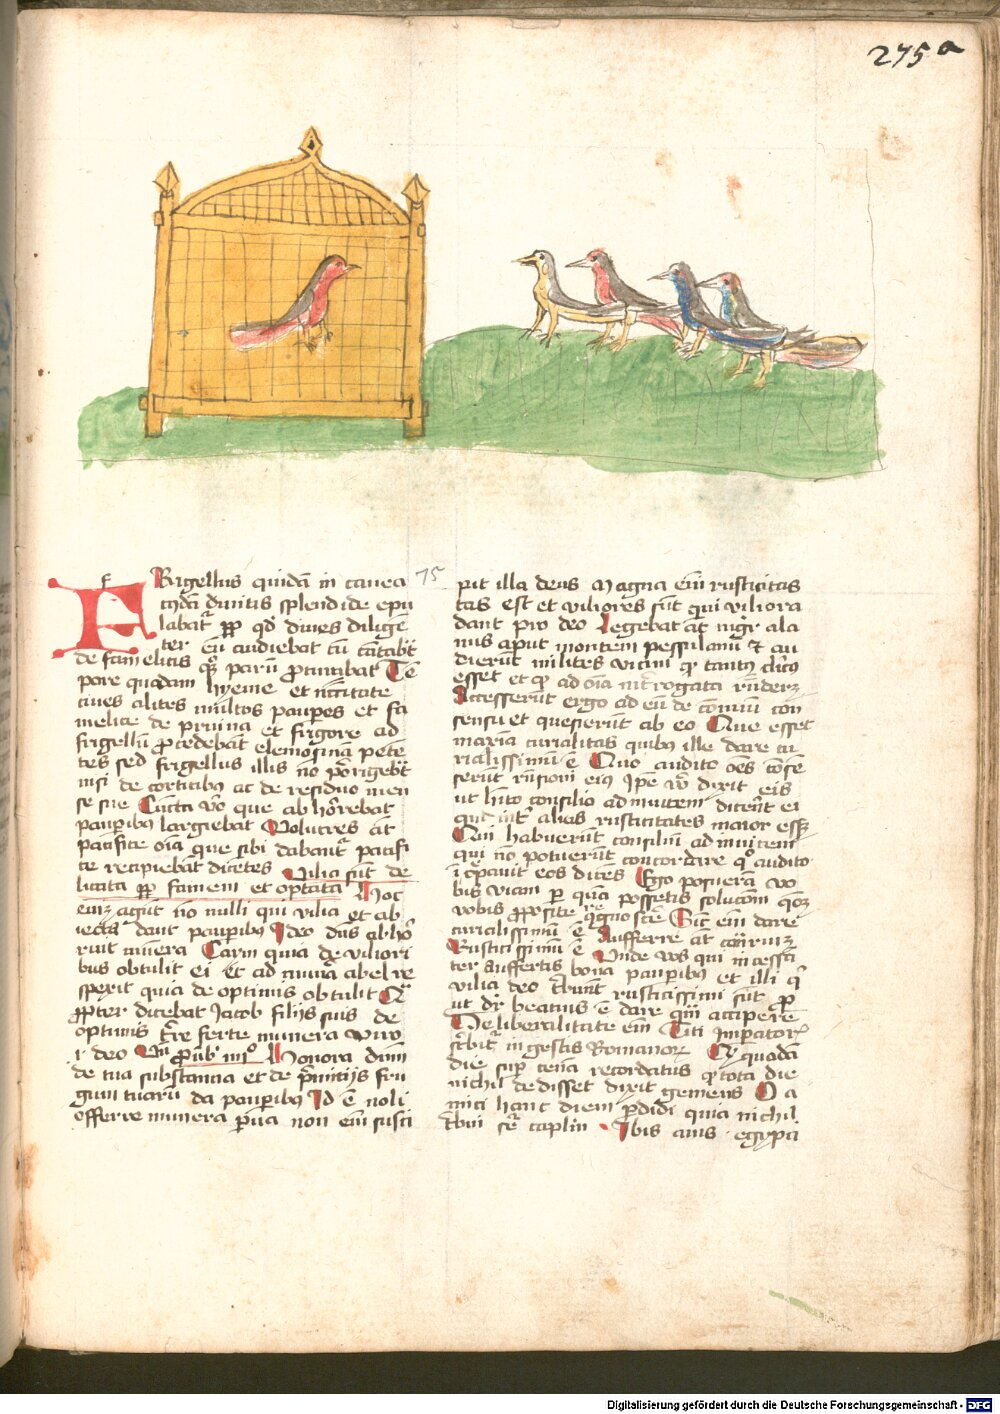 275 a
FRigellus quidā in cavea 75
cuꝰdā divitis splendide epu
labat᷑ ꝓꝑ qđ dives diligē
ter eū audiebat cū cātabꝫ
de famelicis qͥꝫ parū ꝓcurabat Tē
pore quodam hyeme et nc̄citate
cives alites multos pauꝑes et fa
melice de pruina et frigore ad
frigellū ꝓcedebāt elemosinā petē
tes sed frigellus illis nō porrigebꝫ
nisi de corticibꝰ ac de residuo men
se sue Cūcta vͦo que abhorrebat
pauꝑibꝰ largiebat Volucres aūt
pacifice oīa que sibi dabant᷑ pacifi
ce recipiebāt dicētes Vilia sūt de
licata ꝓꝑ famem et optata Hoc
eīꝫ agūt nō nulli qui vilia et ab
iecta dant pauꝑibꝰ Ideo dns abho
ruit munera Cayn quia de viliori
bus obtulit ei Et ad munā abel re
spexit quia de optimis obtulit Qͣ
ꝓpter dicebat Jacob filijs suis de
optimis tr̄e ferte munera viro
i deo Vn̄ ꝓūbꝰ iijͦ Honora dūm
de tua substantia et de primitijs fru
gum tuarū da pauꝑibꝰ Id ē noli
offerre munera pͥva non eīm susci
pit illa deus Magna eīm rusticitas
tas est et viliores sūt qui viliora
dant pro deo Legebat aūt mgr̄ ala
nus aput montem pessulanū et au
dierūt milites vicini qͥ tantꝰ clīcꝰ
esset et qͥ ad oīa int̄rogata rn̄deret
Accesserūt ergo ad eū de cōmuni con
sensu et quesierūt ab eo Que esset
maxīa curialitas quibꝰ ille dare cu
rialissimū ē Quo audito oēs cōsē
serūt rn̄sioni eiꝰ Ipē vͦo dixit eis
ut hīto consilio ad invicem dicerēt ei
quid int̄ alias rusticitates maior esset
Qui habuerūt consiliū ad invicem
qui nō potuerūt concordare qͦ audito
īcͣpavit eos dicēs Ego posuerā vo
bis viam ꝑ quā possetis solucōem qōis
vobis ꝓposite cognoscē Sic eīm dare
curialissimū ē Aufferre aūt
Rusticissimū ē Unde vos qui incessā
ter auffertis bona pauꝑibꝰ et illi qͥ
vilia deo tͥbuūt rusticissimi sūt ꝓ
ut dr̄ beatius ē dare qͣm accipere
De liberalitate eīm Titi Imperatorꝭ
scͥbit᷑ in gestis Romanorꝫ Qͥ quodā
die suꝑ cenā recordatus qͥ tota die
nichil dedisset dixit gemens O a
mici hanc diem ꝑdidi quia nichil
tͥbui Ibis avis egypci
Digitalisierung gefördert durch die Deutsche Forschungsgemeinschaft - DFG